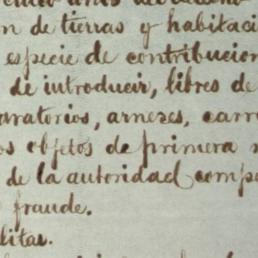 n de tierras y habitaci
especie de contribucion
de introducir, libres de
aratorios, arneses, carr
os objetos de primera n
de la autoridad compe
fraude.
litas.